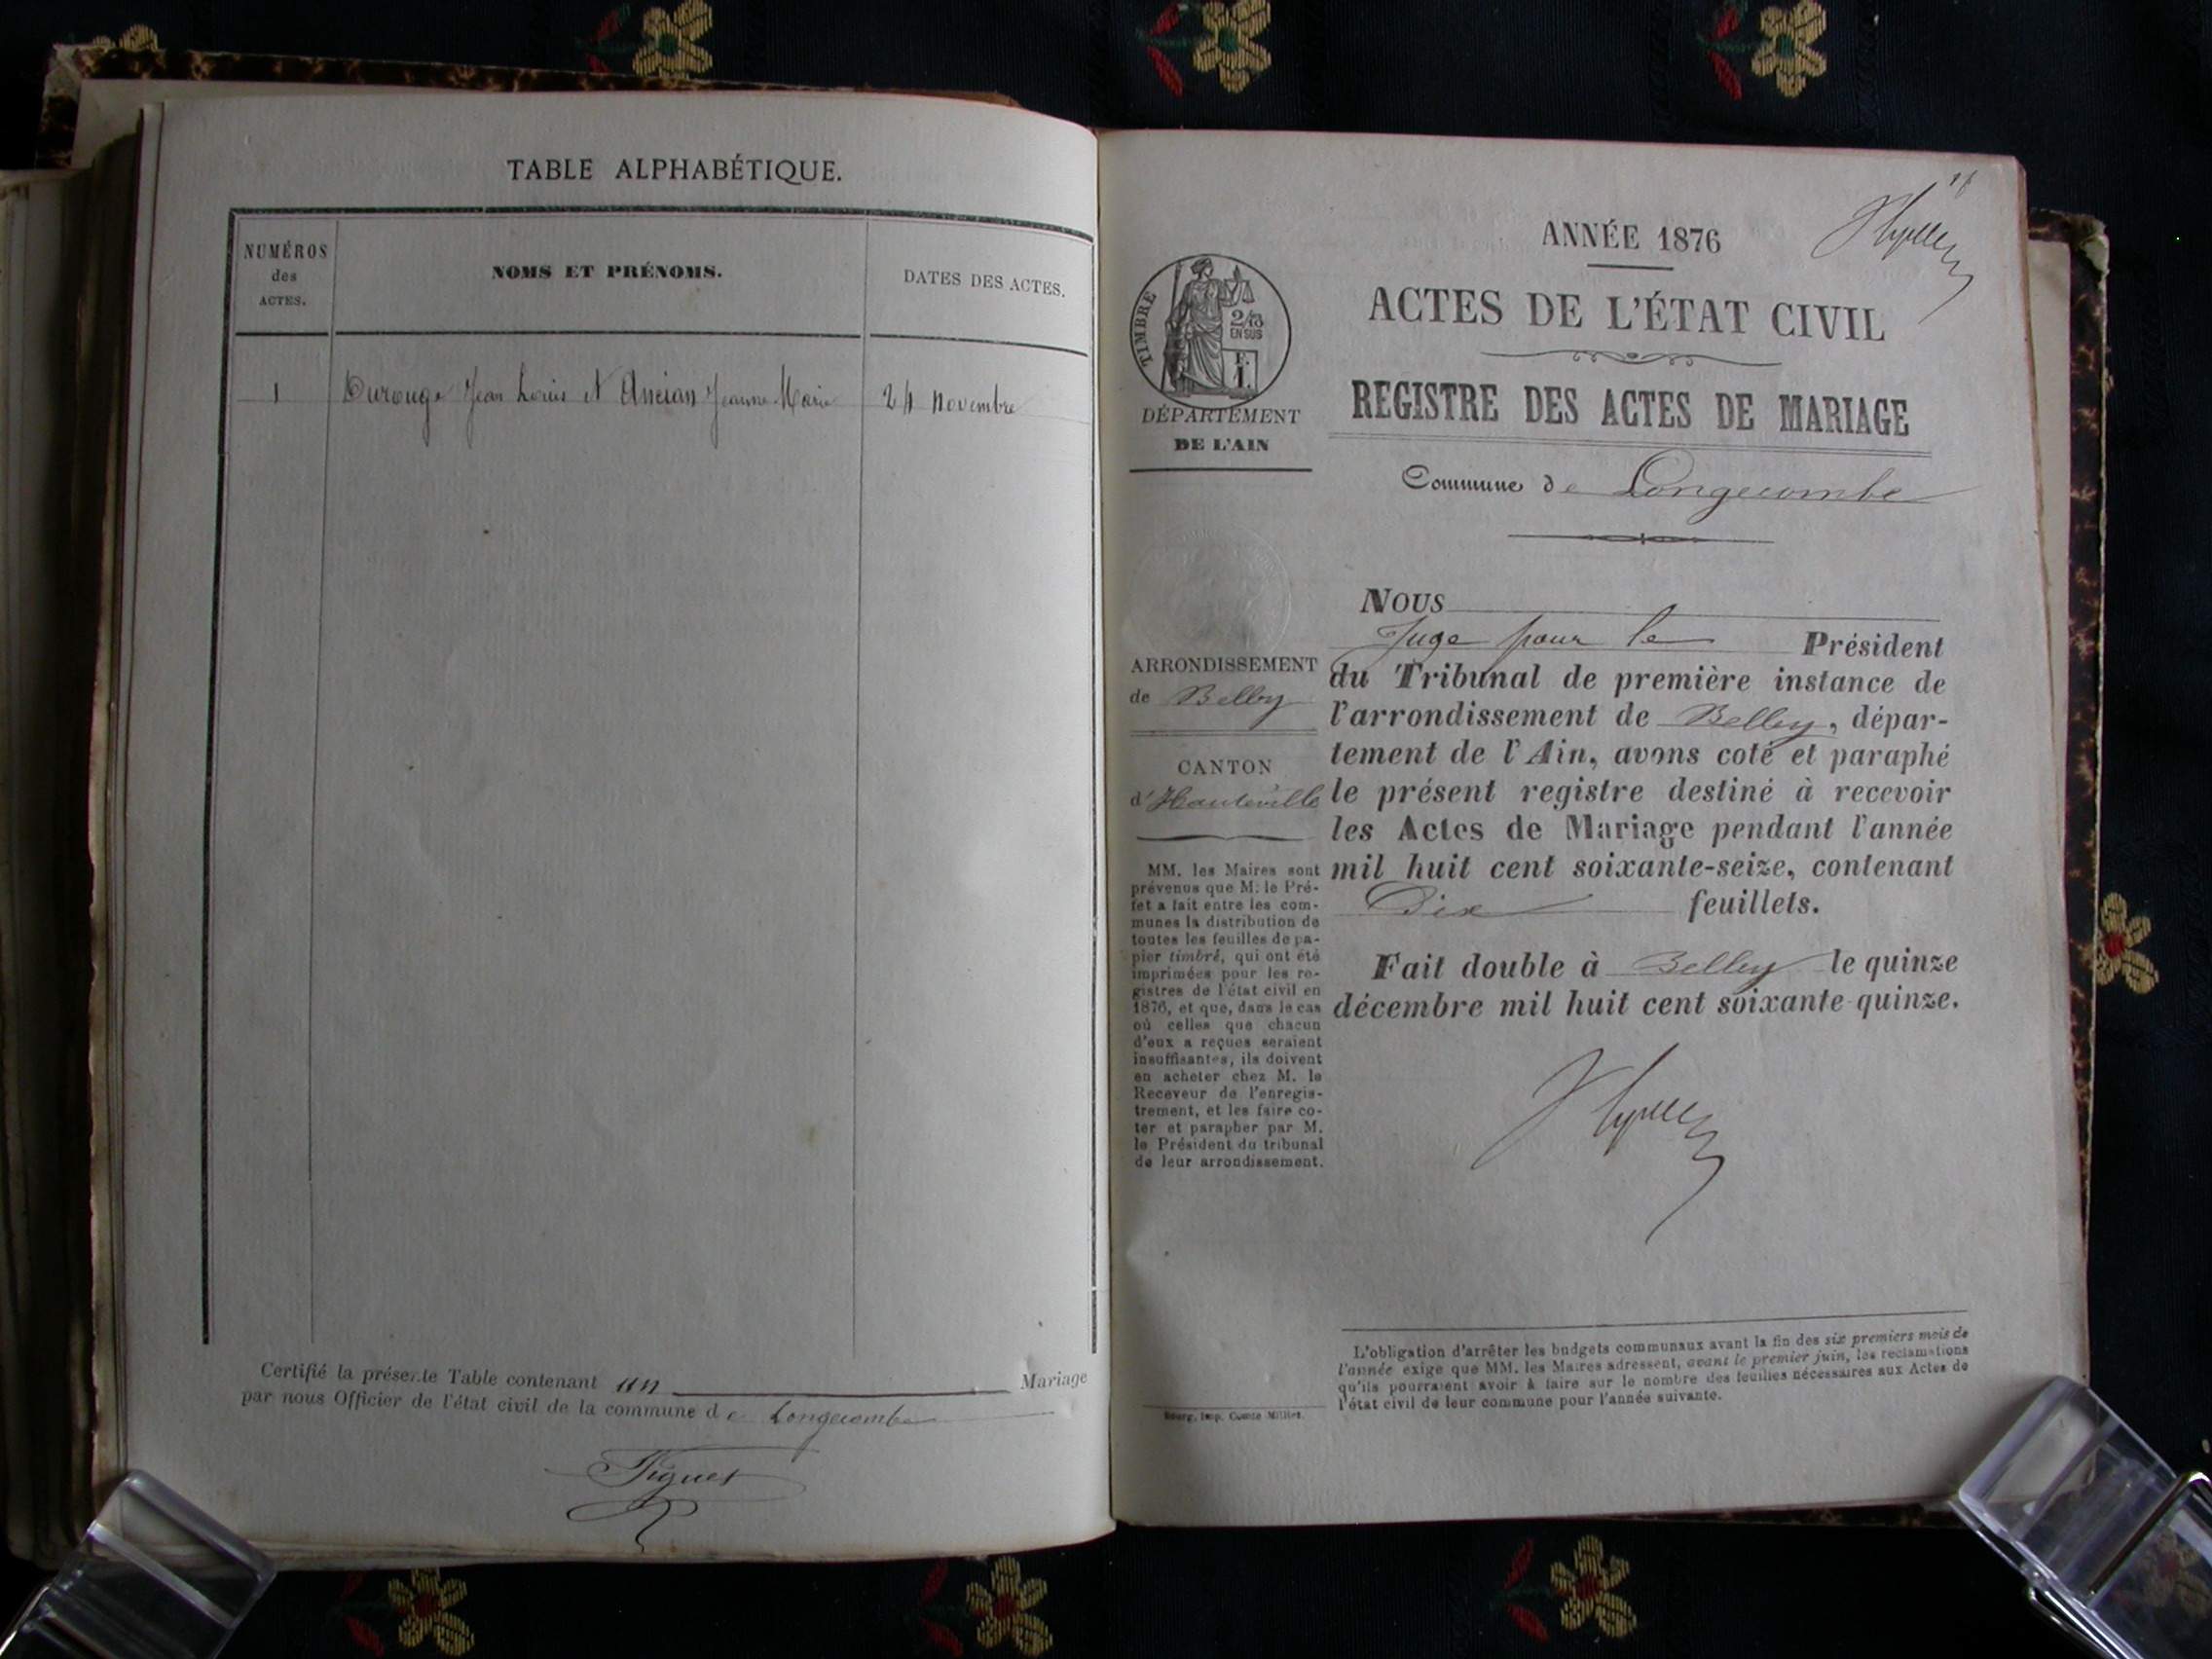 TABLE ALPHABÉTIQUE.
NUMÉROS
des
ACTES.
NOMS ET PRÉNOMS.
DATES DES ACTES.
1 Durouge Jean Louis et Ancian Jeanne Marie 24 novembre
Certifié la présente Table contenant un Mariage
par nous Officier de l'état civil de la commune de Longecombe
Figuet
ANNÉE 1876
ACTES DE L'ÉTAT CIVIL
REGISTRE DES ACTES DE MARIAGE
Commune de Longecombe
TIMBRE
2/10
EN SUS
F.
1.
DÉPARTEMENT
DE L'AIN
ARRONDISSEMENT
de Belley
CANTON
d'Hauteville
MM. les Maires sont
prévenus que M. le Pré-
fet a fait entre les com-
munes la distribution de
toutes les feuilles de pa-
pier timbré, qui ont été
imprimées pour les re-
gistres de l'état civil en
1876, et que, dans le cas
où celles que chacun
d'eux a reçues seraient
insuffisantes, ils doivent
en acheter chez M. le
Receveur de l'enregis-
trement, et les faire co-
ter et parapher par M.
le Président du tribunal
de leur arrondissement.
Bourg, Imp. Comte Milliet.
NOUS
Juge pour le Président
du Tribunal de première instance de
l'arrondissement de Belley, dépar-
tement de l'Ain, avons coté et paraphé
le présent registre destiné à recevoir
les Actes de Mariage pendant l'année
mil huit cent soixante-seize, contenant
Dix feuillets.
Fait double à Belley le quinze
décembre mil huit cent soixante-quinze.
L'obligation d'arrêter les budgets communaux avant la fin des six premiers mois de
l'année exige que MM. les Maires adressent, avant le premier juin, les réclamations
qu'ils pourraient avoir à faire sur le nombre des feuilles nécessaires aux Actes de
l'état civil de leur commune pour l'année suivante.